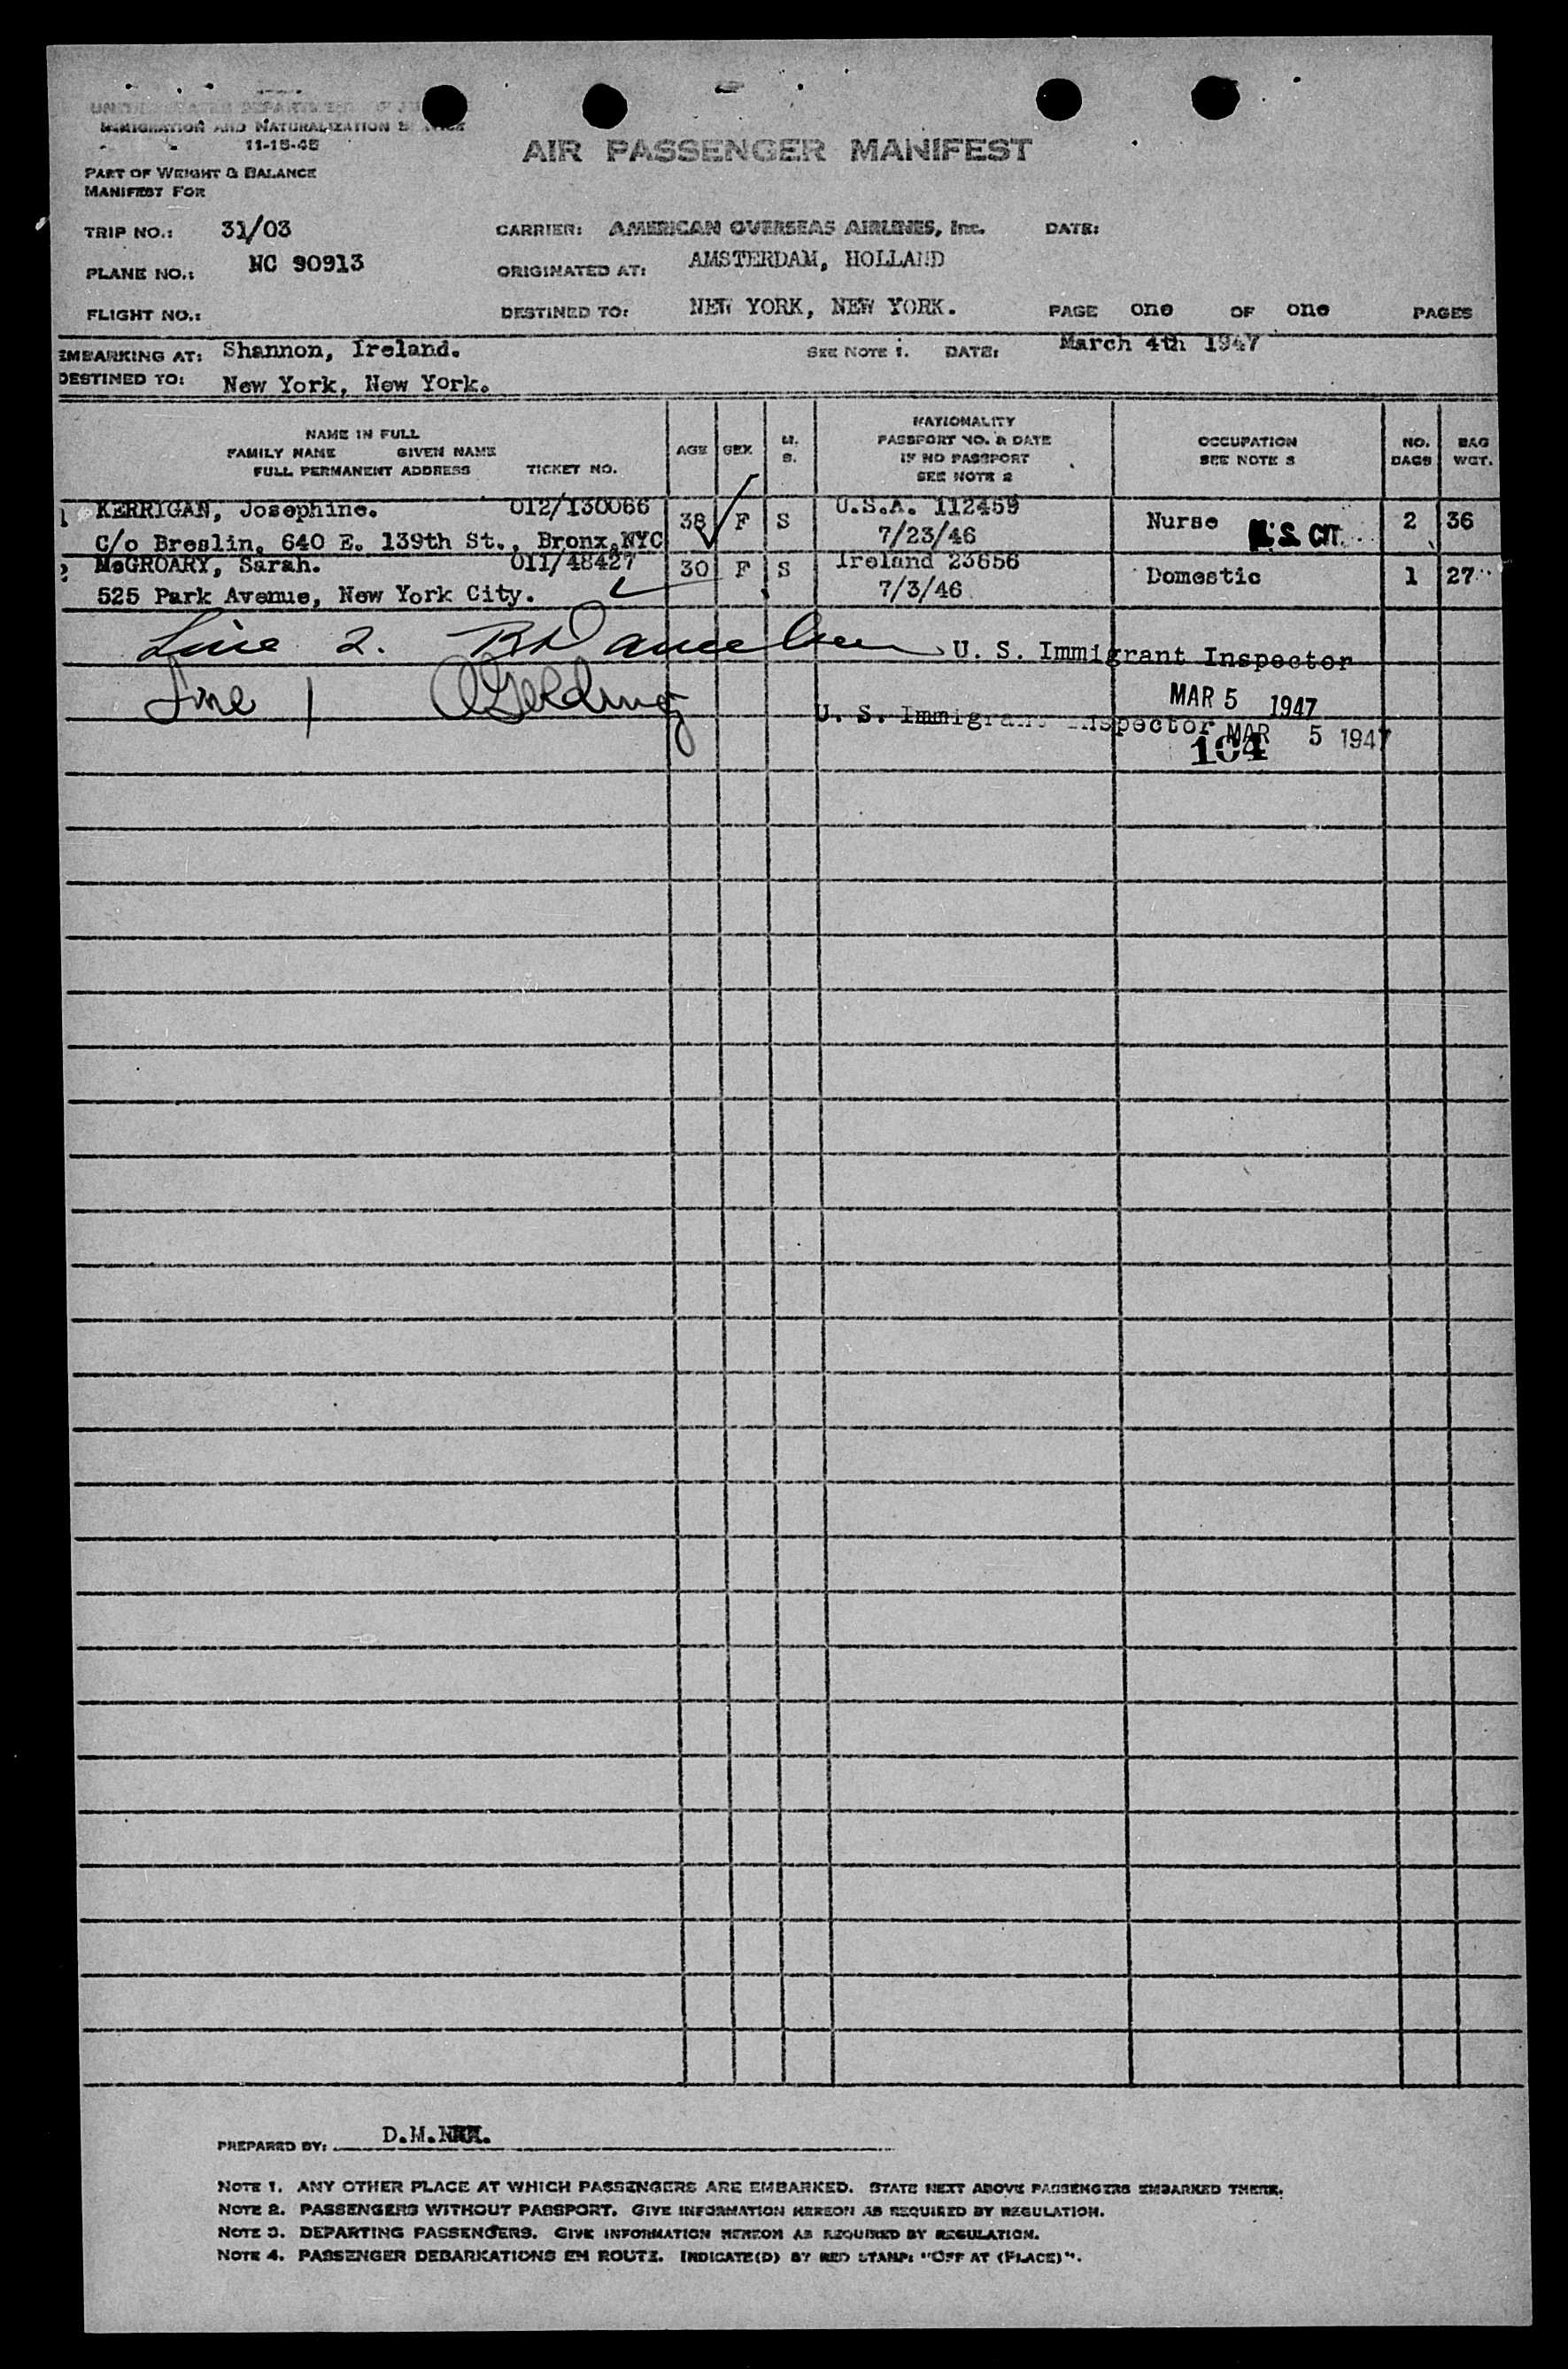 UNITED STATES DEPARTMENT OF JUSTICE
IMMIGRATION AND NATURALIZATION SERVICE
11-15-45
AIR PASSENGER MANIFEST
PART OF WEIGHT & BALANCE
MANIFEST FOR
TRIP NO.: 31/03 CARRIER: AMERICAN OVERSEAS AIRLINES, Inc. DATE:
PLANE NO.: NC 90913 ORIGINATED AT: AMSTERDAM, HOLLAND
FLIGHT NO.: DESTINED TO: NEW YORK, NEW YORK. PAGE one OF one PAGES
EMBARKING AT: Shannon, Ireland. SEE NOTE 1. DATE: March 4th 1947
DESTINED TO: New York, New York.
NAME IN FULL
FAMILY NAME GIVEN NAME
FULL PERMANENT ADDRESS TICKET NO.
AGE
SEX
M.
S.
NATIONALITY
PASSPORT NO. & DATE
IF NO PASSPORT
SEE NOTE 2
OCCUPATION
SEE NOTE 3
NO.
BAGS
BAG
WGT.
1 KERRIGAN, Josephine. 012/130066 38 F S U.S.A. 112459 Nurse U.S. CIT. 2 36
C/o Breslin, 640 E. 139th St., Bronx,NYC 7/23/46
2 McGROARY, Sarah. 011/48427 30 F S Ireland 23656 Domestic 1 27
525 Park Avenue, New York City. 7/3/46
Line 2. U. S. Immigrant Inspector
MAR 5 1947
Line 1 U. S. Immigrant Inspector MAR 5 1947
104
PREPARED BY: D.M.
NOTE 1. ANY OTHER PLACE AT WHICH PASSENGERS ARE EMBARKED. STATE NEXT ABOVE PASSENGERS EMBARKED THERE.
NOTE 2. PASSENGERS WITHOUT PASSPORT. GIVE INFORMATION HEREON AS REQUIRED BY REGULATION.
NOTE 3. DEPARTING PASSENGERS. GIVE INFORMATION HEREON AS REQUIRED BY REGULATION.
NOTE 4. PASSENGER DEBARKATIONS EN ROUTE. INDICATE(D) BY RED STAMP: "OFF AT (PLACE)".